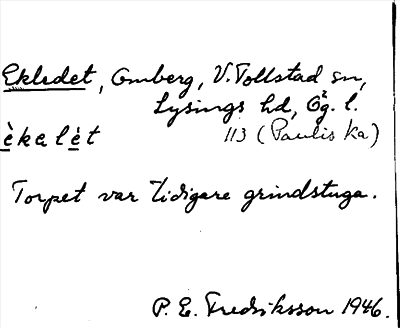 Ekledet, Omberg, V. Tollstad sn,
Lysings hd, Ög. l.
è k a l è t 113 (Paulis ka)
Torpet var tidigare grindstuga.
P. E. Fredriksson 1946.